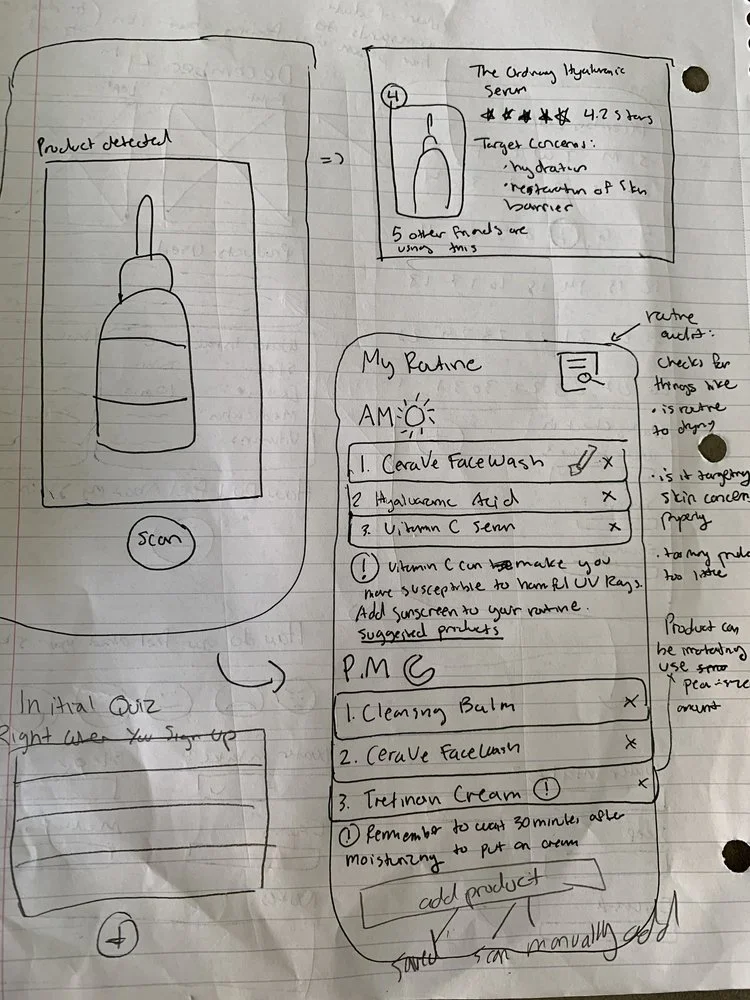 Product detected
Scan
=>
4
The Ordinary Hyaluronic
Serum
4.2 Stars
Target Concerns:
• hydration
• restoration of skin
barrier
5 other friends are
using this
routine
audit:
checks for
things like
• is routine
to drying
• is it targeting
skin concern
properly
too little
My Routine
AM
1. CeraVe FaceWash x
2 Hyaluronic Acid x
3. Vitamin C Serum x
! Vitamin C can make you
more susceptible to harmful UV Rays.
Add sunscreen to your routine.
suggested products
P.M
1. Cleansing Balm x
2. CeraVe FaceWash x
3. Tretinoin Cream ! x
! Remember to wait 30 minutes after
moisturizing to put on cream
add product
saved scan manually add
Product can
be irritating
use
pea-size
amount
Initial Quiz
Right when You Sign Up